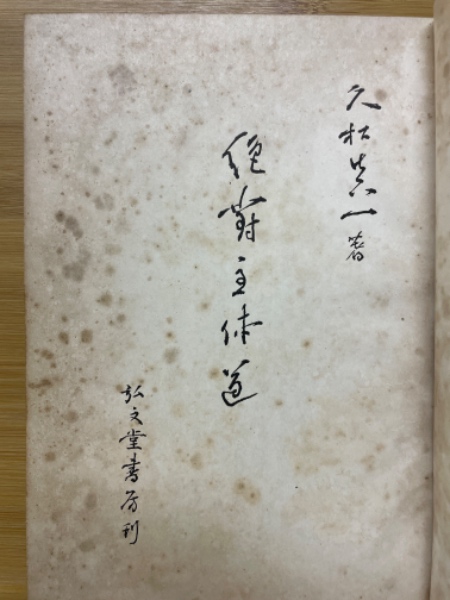 久松真一著
絶對主体道
弘文堂書房刊